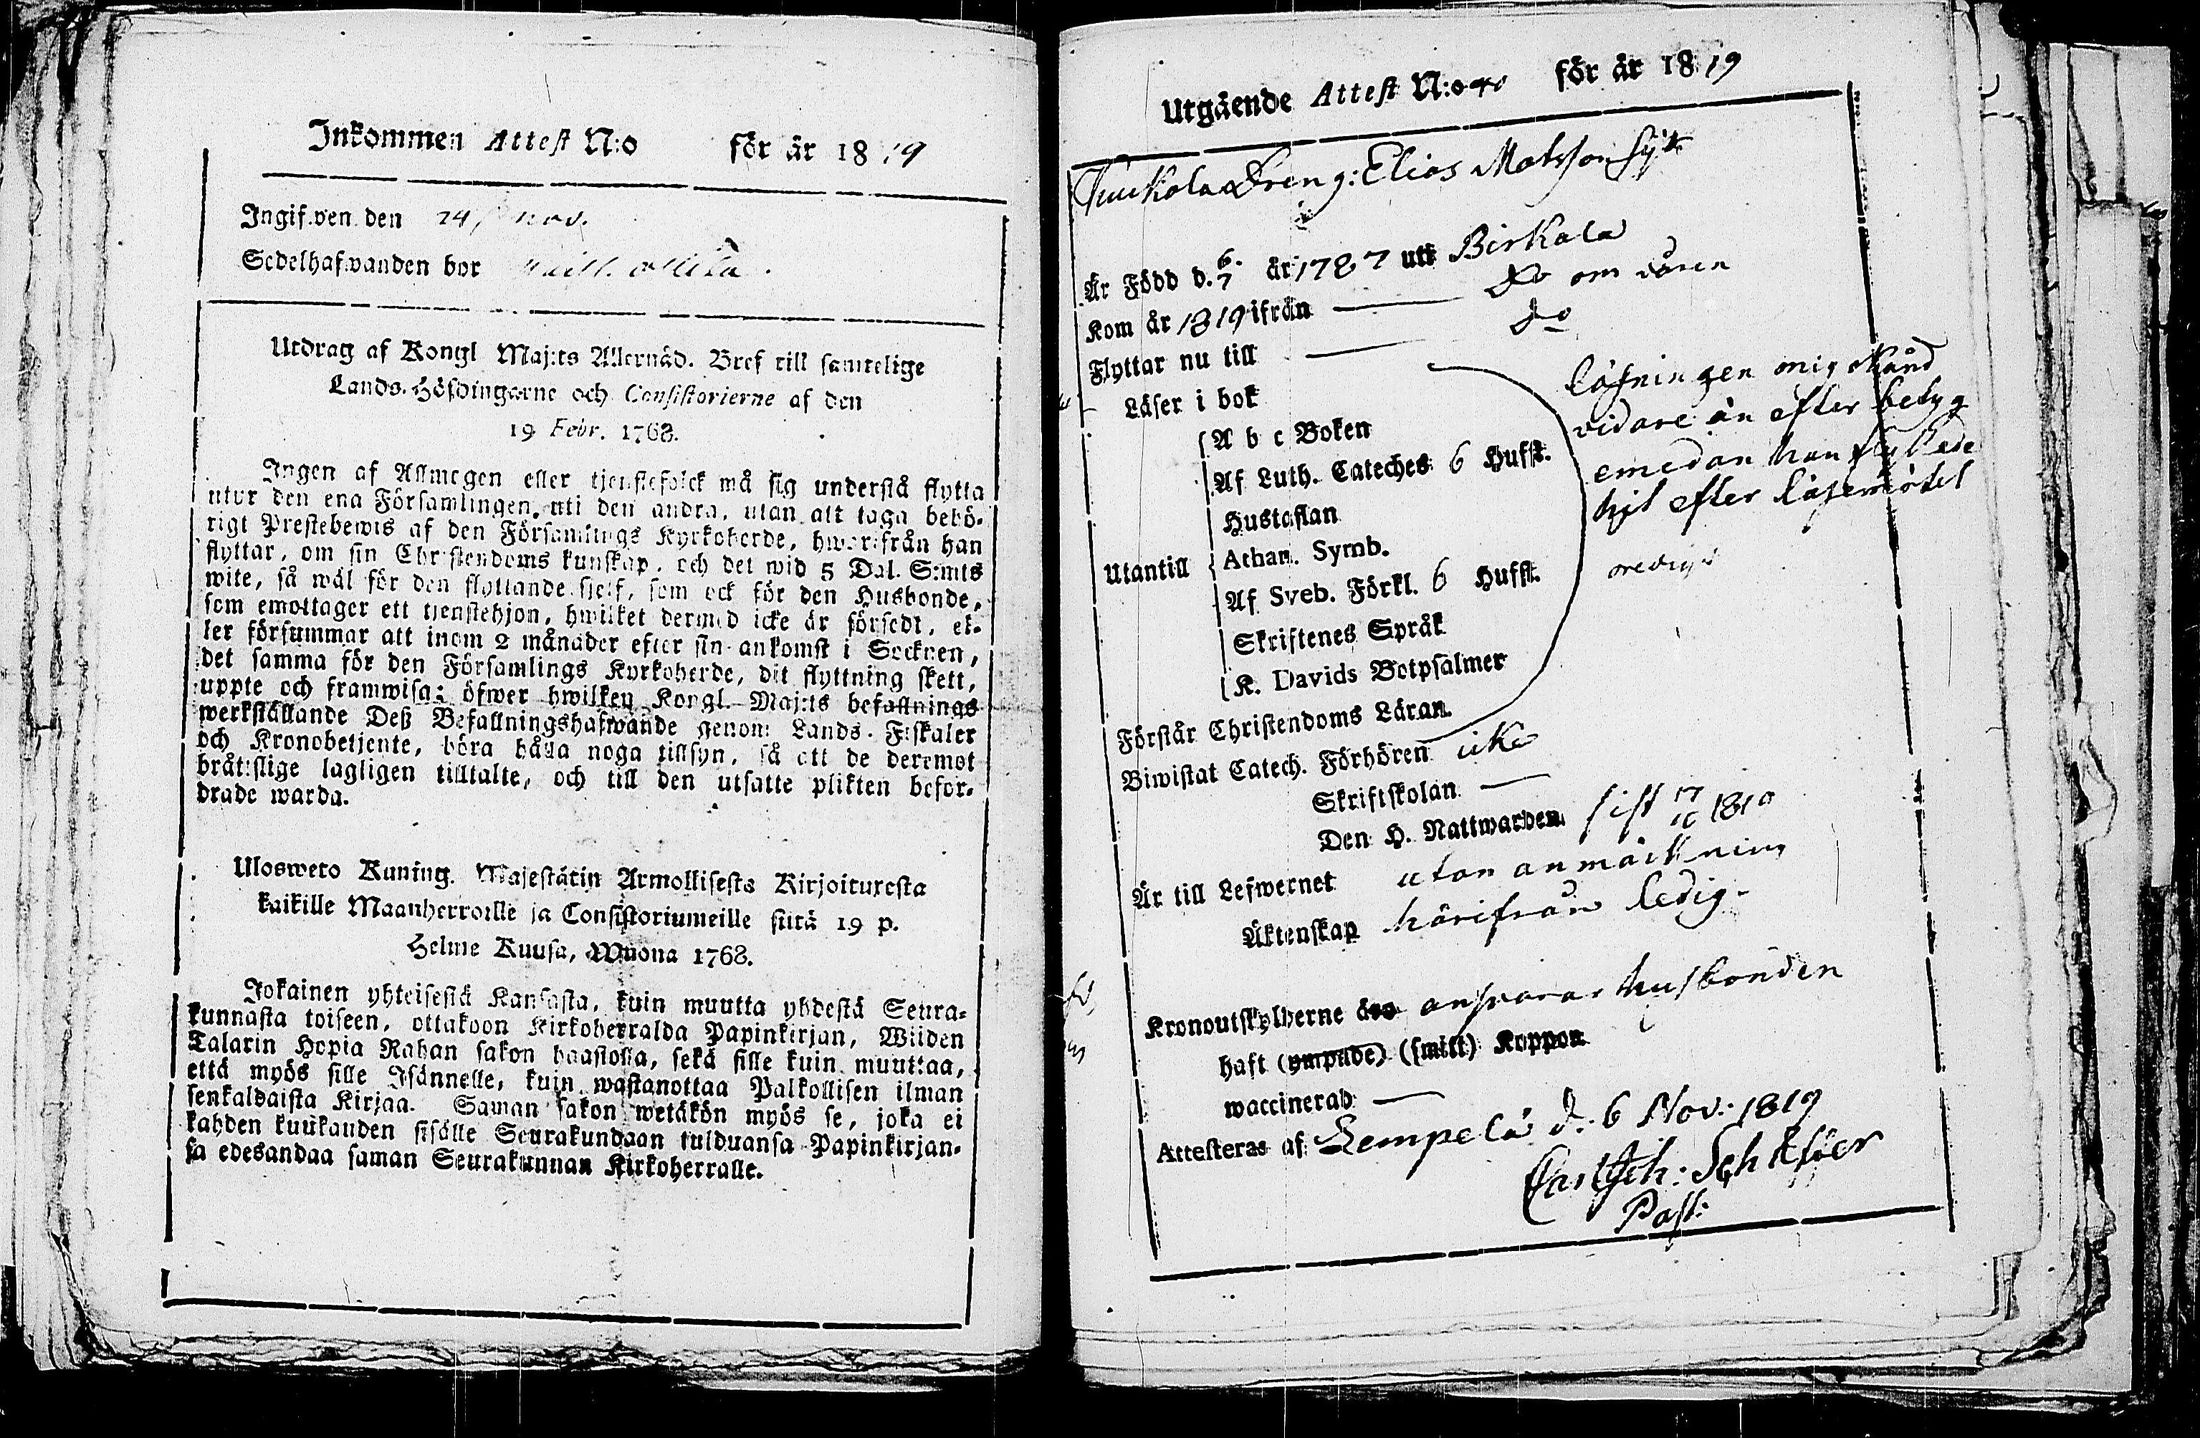 Inkommen Attest N:o för år 1819
Ingifven den 24/ nov.
Sedelhafwanden bor
Utdrag af Kongl Maj:ts Allernåd. Bref till samtelige
Lands-Höfdingarne och Consistorierne af den
19 Febr. 1768.
Ingen af Allmogen eller tjenstefolck må sig understå flytta
utur den ena Församlingen uti den andra, utan att taga behö-
rigt Prestebewis af den Församlings Kyrkoherde, hwarifrån han
flyttar, om sin Christendoms kunskap, och det wid 5 Dal. S:mts
wite, så wäl för den flyttande sjelf, som ock för den Husbonde,
som emottager ett tjenstehjon, hwilket dermed icke är försedt, el-
ler försummar att inom 2 månader efter sin ankomst i Socknen,
det samma för den Församlings Kyrkoherde, dit flyttning skett,
uppte och framwisa; öfwer hwilken Kongl. Maj:ts befallnings
werkställande Deß Befallningshafwande genom Lands-Fiskaler
och Kronobetjente, böra hålla noga tillsyn, så att de deremot
bråttslige lagligen tilltalte, och till den utsatte plikten befor-
drade warda.
Ulosweto Kuning. Majestätin Armollisesta Kirjoituxesta
kaikille Maanherroille ja Consistoriumeille siitä 19 p.
Helme Kuusa, Wuona 1768.
Jokainen yhteisestä Kansasta, kuin muutta yhdestä Seura-
kunnasta toiseen, ottakoon Kirkoherralda Papinkirjan, Wiiden
Talarin Hopia Rahan sakon haastolla, sekä sille kuin muuttaa,
että myös sille Isännelle, kuin wastanottaa Palkollisen ilman
senkaldaista Kirjaa. Saman sakon wetäkön myös se, joka ei
kahden kuukauden sisälle Seurakundaan tulduansa Papinkirjan-
sa edesandaa saman Seurakunnan Kirkoherralle.
Utgående Attest N:o 40 för år 1819
Dreng: Elias Matsson
Är Född d. 6/7 år 1787 uti Birkala
Kom år 1819 ifrån — Do om våren
Flyttar nu till — Do
Läser i bok
A b c Boken
Af Luth. Cateches 6 Hufst.
Hustaflan
Utantill Athan. Symb.
Af Sveb. Förkl. 6 Hufst.
Skriftenes Språk
K. Davids Botpsalmer
läsningen mig okänd
vidare än efter betyg
emedan han flyttade
hit efter läsemötet
Förstår Christendoms Läran
Biwistat Catech. Förhören icke
Skriftskolan —
Den H. Nattwarden sist 17/10 1810
Är till Lefwernet utan anmärkning
Äktenskap härifrån ledig.
Kronoutskylderne äro ansvarar husbonden
haft (ympade) (smitt) Koppor
waccinerad —
Attesteras af Lempelä d. 6 Nov. 1819
Past: